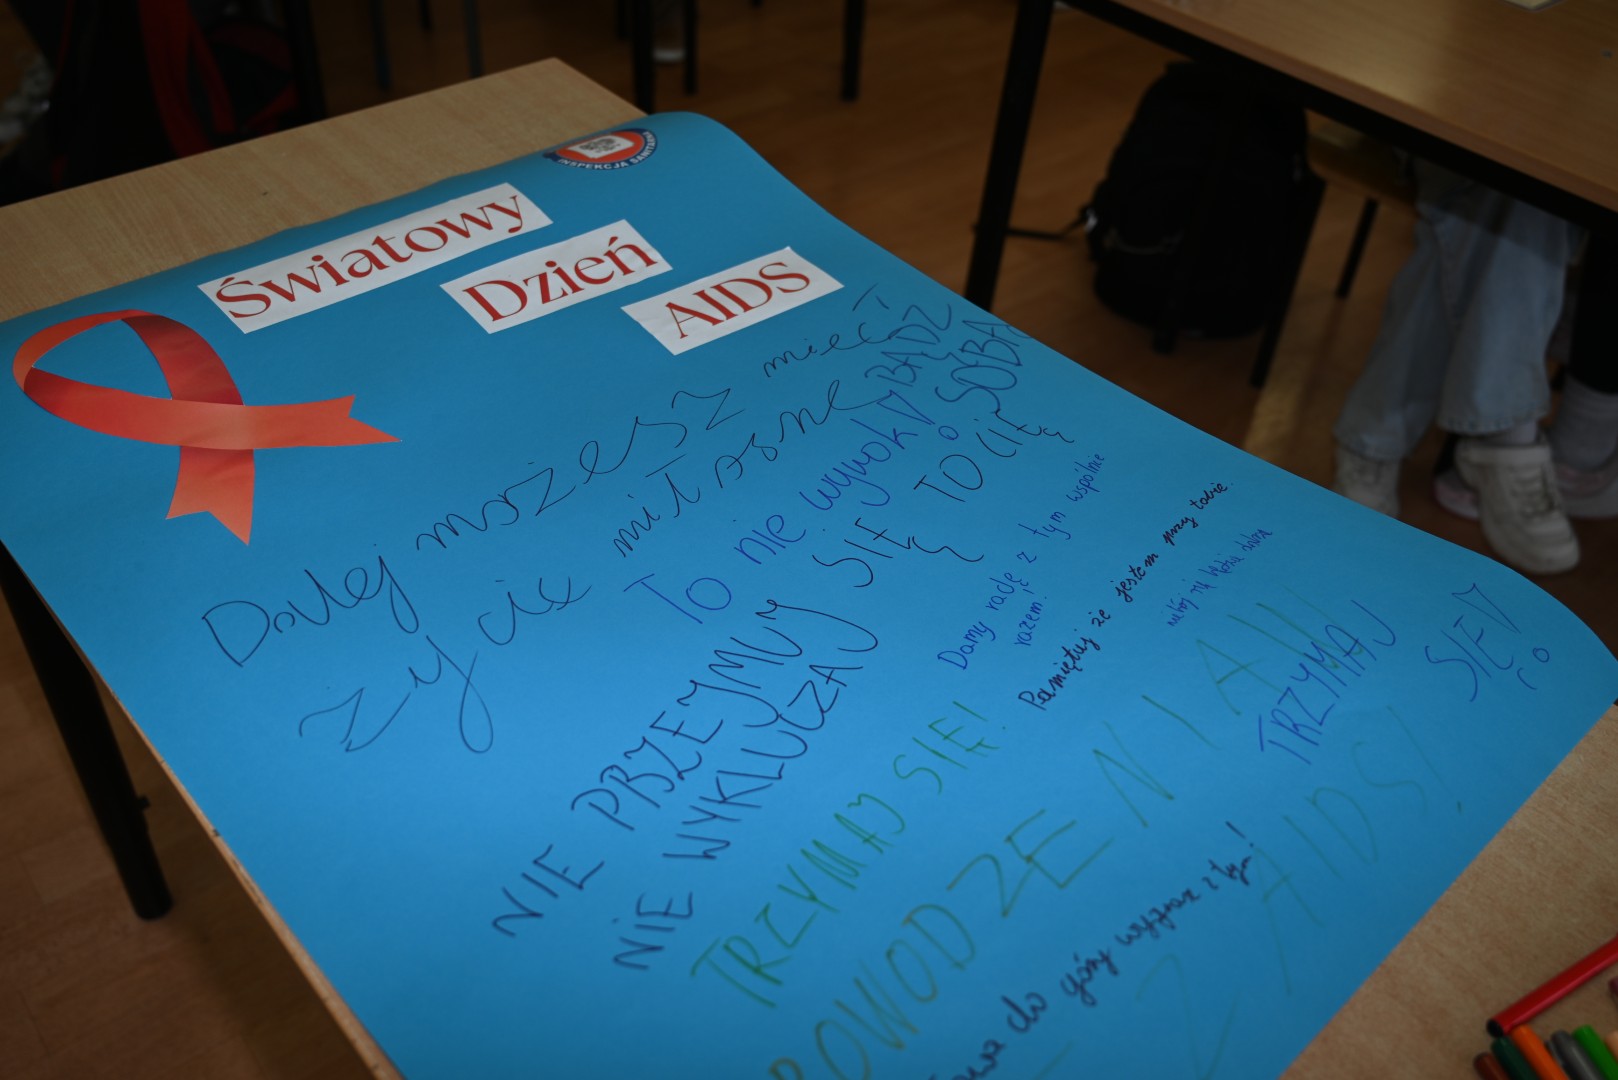 INSPEKCJA SANITARNA
Światowy
Dzień
AIDS
Dalej możesz mieć
życie miłosne
To nie wyrok
BĄDŹ
SOBĄ
NIE PRZEJMUJ SIĘ TO CIĘ
NIE WYKLUCZAJ
Damy radę z tym wspólnie
razem.
Pamiętaj że jestem przy tobie.
TRZYMAJ SIĘ!
TRZYMAJ
SIĘ
POWODZENIA W
Z AIDS!
do góry wyjdziesz z tym!